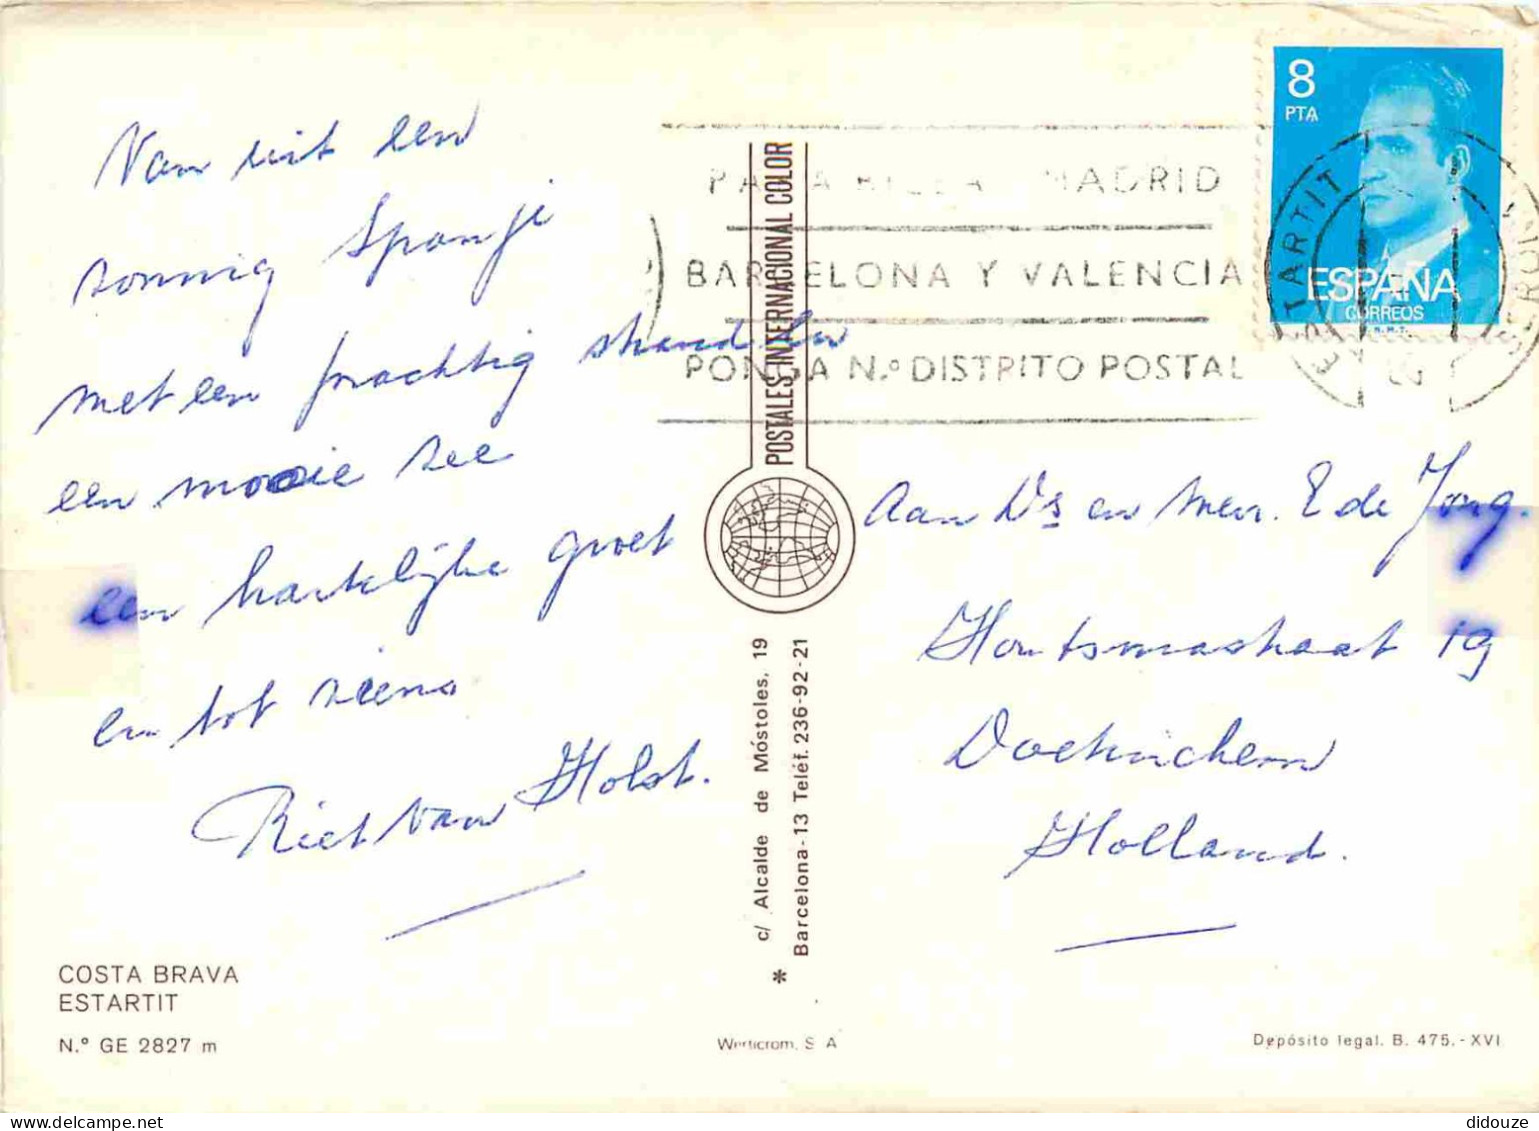 Van uit een
sonnig Spanje
met een prachtig strand en
een mooie zee
een hartelijke groet
en tot ziens
Riet van Holst.
COSTA BRAVA
ESTARTIT
N.º GE 2827 m
POSTALES INTERNACIONAL COLOR
c/ Alcalde de Móstoles, 19
Barcelona-13 Teléf. 236-92-21
*
Werticrom, S A
8
PTA
ESPAÑA
CORREOS
F.N.M.T.
PARA MADRID
BARCELONA Y VALENCIA
PONGA N.º DISTRITO POSTAL
ESTARTIT
Aan Ds en Mevr. E de Jong.
Houtsmastraat 19
Doetinchem
Holland.
Depósito legal. B. 475.-XVI
didouze